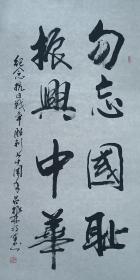 勿忘國恥
振興中華
紀念抗日戰爭勝利七十周年